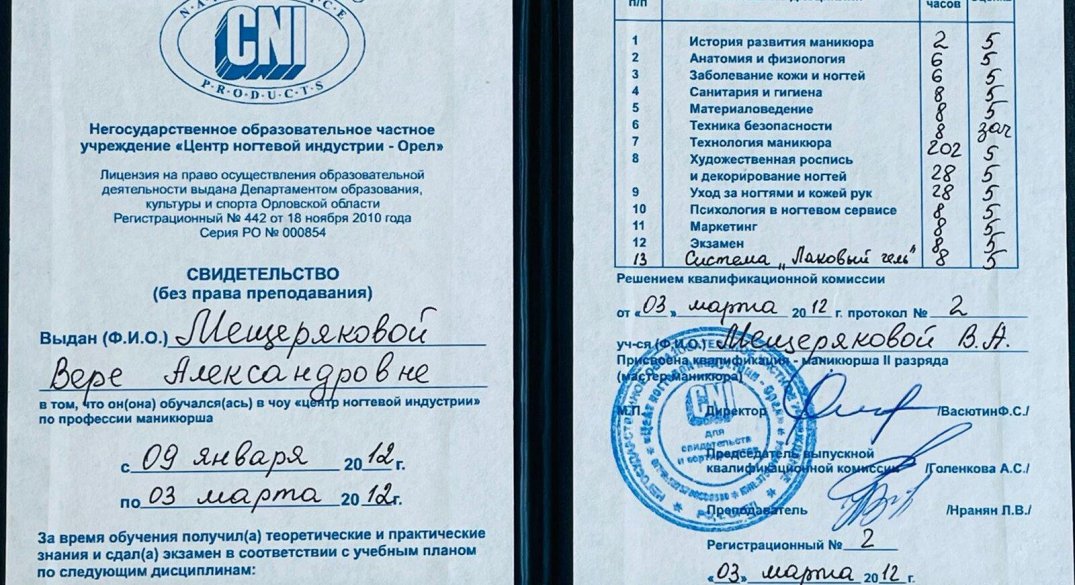 CNI
P·R·O·D·U·C·T·S
Негосударственное образовательное частное
учреждение «Центр ногтевой индустрии - Орел»
Лицензия на право осуществления образовательной
деятельности выдана Департаментом образования,
культуры и спорта Орловской области
Регистрационный № 442 от 18 ноября 2010 года
Серия РО № 000854
СВИДЕТЕЛЬСТВО
(без права преподавания)
Выдан (Ф.И.О.) Мещеряковой
Вере Александровне
в том, что он(она) обучался(ась) в чоу «центр ногтевой индустрии»
по профессии маникюрша
с 09 января 2012г.
по 03 марта 2012г.
За время обучения получил(а) теоретические и практические
знания и сдал(а) экзамен в соответствии с учебным планом
по следующим дисциплинам:
п/п часов
1 История развития маникюра 2 5
2 Анатомия и физиология 6 5
3 Заболевание кожи и ногтей 6 5
4 Санитария и гигиена 8 5
5 Материаловедение 8 5
6 Техника безопасности 8 зач
7 Технология маникюра 202 5
8 Художественная роспись
и декорирование ногтей 28 5
9 Уход за ногтями и кожей рук 28 5
10 Психология в ногтевом сервисе 8 5
11 Маркетинг 8 5
12 Экзамен 8 5
13 Система „Лаковый гель" 8 5
Решением квалификационной комиссии
от «03» марта 2012 г. протокол № 2
уч-ся (Ф.И.О.) Мещеряковой В.А.
Присвоена квалификация - маникюрша II разряда
(мастер маникюра)
М.П. Директор /ВасютинФ.С./
Председатель выпускной
квалификационной комиссии /Голенкова А.С./
Преподаватель /Нранян Л.В./
CNI
для
свидетельств
Регистрационный № 2
«03» марта 2012 г.